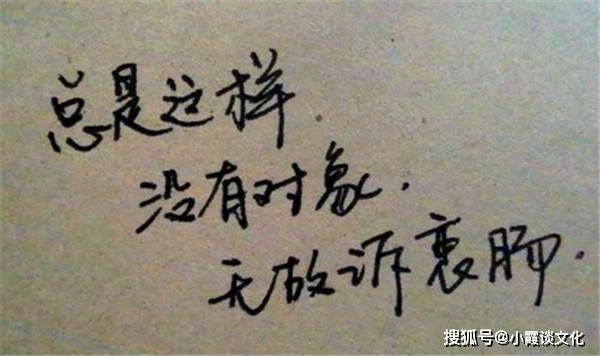 总是这样.
没有对象.
无故诉衷肠.
搜狐号@小霞谈文化